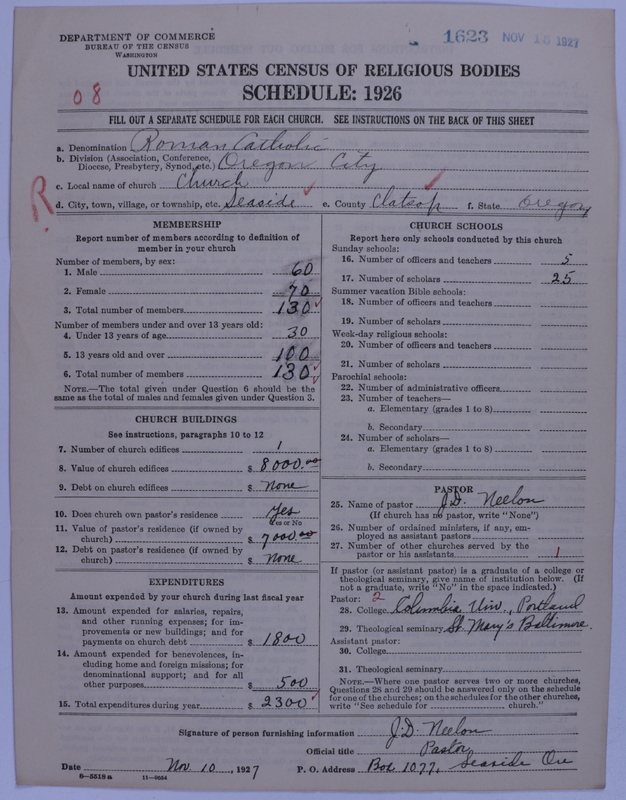 DEPARTMENT OF COMMERCE
BUREAU OF THE CENSUS
WASHINGTON
1623 NOV 15 1927
UNITED STATES CENSUS OF RELIGIOUS BODIES
SCHEDULE: 1926
08
FILL OUT A SEPARATE SCHEDULE FOR EACH CHURCH. SEE INSTRUCTIONS ON THE BACK OF THIS SHEET
a. Denomination Roman Catholic
b. Division (Association, Conference, Diocese, Presbytery, Synod, etc.) Oregon City
c. Local name of church Church
R
d. City, town, village, or township, etc. Seaside e. County Clatsop f. State Oregon
MEMBERSHIP
Report number of members according to definition of
member in your church
Number of members, by sex:
1. Male 60
2. Female 70
3. Total number of members 130
Number of members under and over 13 years old:
4. Under 13 years of age 30
5. 13 years old and over 100
6. Total number of members 130
NOTE.—The total given under Question 6 should be the
same as the total of males and females given under Question 3.
CHURCH BUILDINGS
See instructions, paragraphs 10 to 12
7. Number of church edifices 1
8. Value of church edifices $ 8000.00
9. Debt on church edifices $ None
10. Does church own pastor's residence Yes
Yes or No
11. Value of pastor's residence (if owned by
church) $ 7000.00
12. Debt on pastor's residence (if owned by
church) $ None
EXPENDITURES
Amount expended by your church during last fiscal year
13. Amount expended for salaries, repairs,
and other running expenses; for im-
provements or new buildings; and for
payments on church debt $ 1800
14. Amount expended for benevolences, in-
cluding home and foreign missions; for
denominational support; and for all
other purposes $ 500
15. Total expenditures during year $ 2300
CHURCH SCHOOLS
Report here only schools conducted by this church
Sunday schools:
16. Number of officers and teachers 5
17. Number of scholars 25
Summer vacation Bible schools:
18. Number of officers and teachers
19. Number of scholars
Week-day religious schools:
20. Number of officers and teachers
21. Number of scholars
Parochial schools:
22. Number of administrative officers
23. Number of teachers—
a. Elementary (grades 1 to 8)
b. Secondary
24. Number of scholars—
a. Elementary (grades 1 to 8)
b. Secondary
PASTOR
25. Name of pastor J.D. Neelon
(If church has no pastor, write "None")
26. Number of ordained ministers, if any, em-
ployed as assistant pastors
27. Number of other churches served by the
pastor or his assistants 1
If pastor (or assistant pastor) is a graduate of a college or
theological seminary, give name of institution below. (If
not a graduate, write "No" in the space indicated.)
Pastor: 2
28. College Columbia Univ., Portland
29. Theological seminary St. Mary's Baltimore.
Assistant pastor:
30. College
31. Theological seminary
NOTE.—Where one pastor serves two or more churches,
Questions 28 and 29 should be answered only on the schedule
for one of the churches; on the schedules for the other churches,
write "See schedule for church."
Signature of person furnishing information J.D. Neelon
Official title Pastor
Date Nov. 10, 1927 P. O. Address Box 1077, Seaside Ore
8-5518a 11-9054